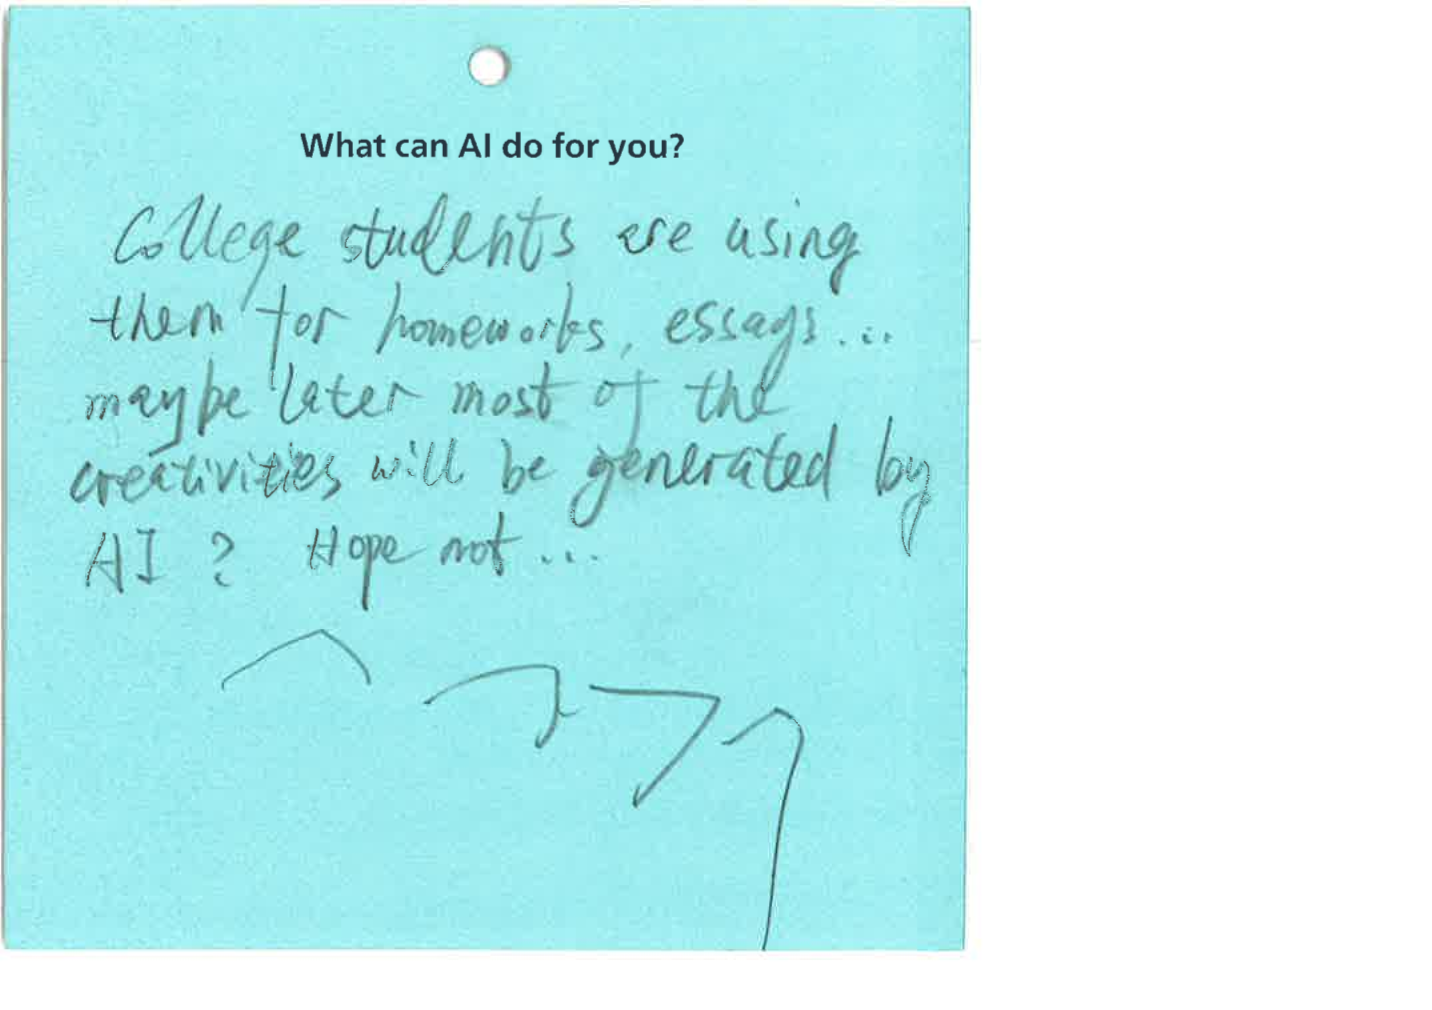 What can AI do for you?
College students are using
them for homeworks, essays...
maybe later most of the
creativities will be generated by
AI ? Hope not...